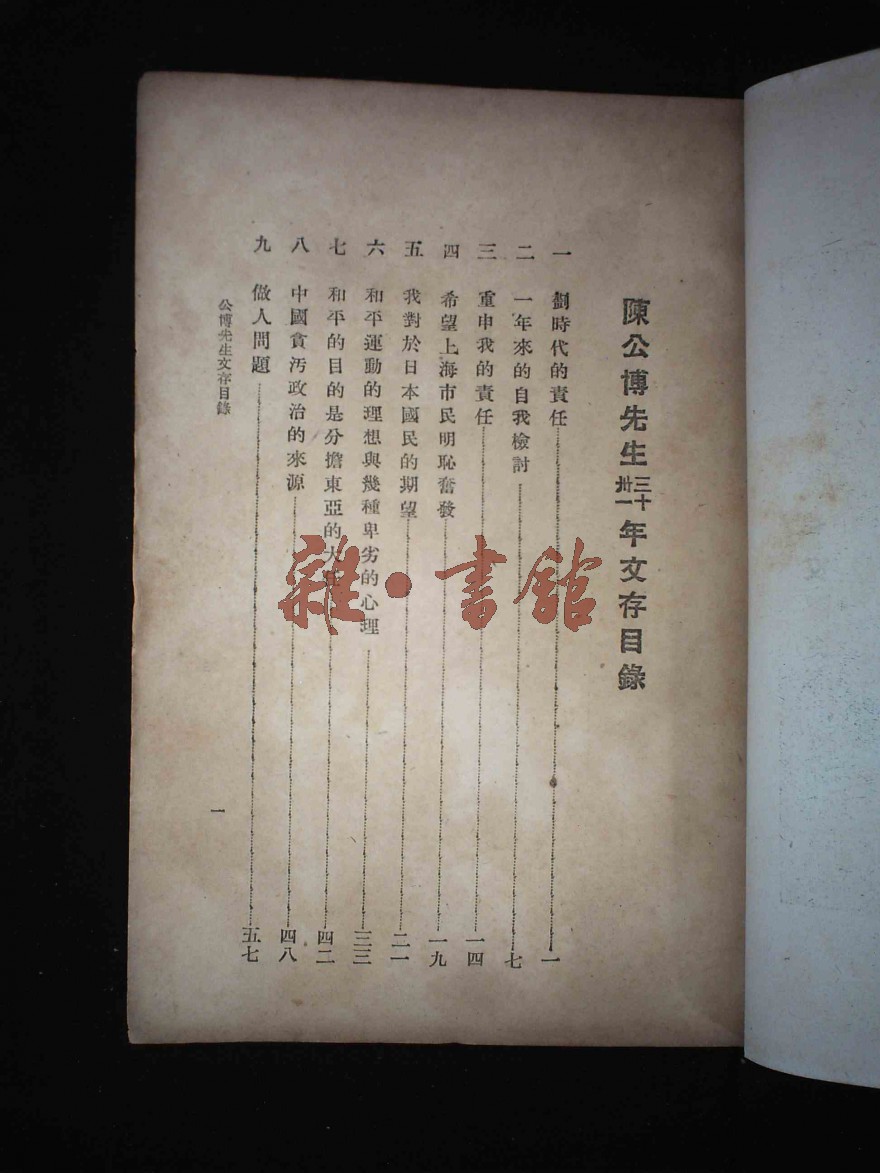 陳公博先生三十卅一年文存目錄
一 劃時代的責任 一
二 一年來的自我檢討 七
三 重申我的責任 一四
四 希望上海市民明恥奮發 一九
五 我對於日本國民的期望 二一
六 和平運動的理想與幾種卑劣的心理 三三
七 和平的目的是分擔東亞的大 四二
八 中國貪汚政治的來源 四八
九 做人問題 五七
公博先生文存目錄
一
雜·書館